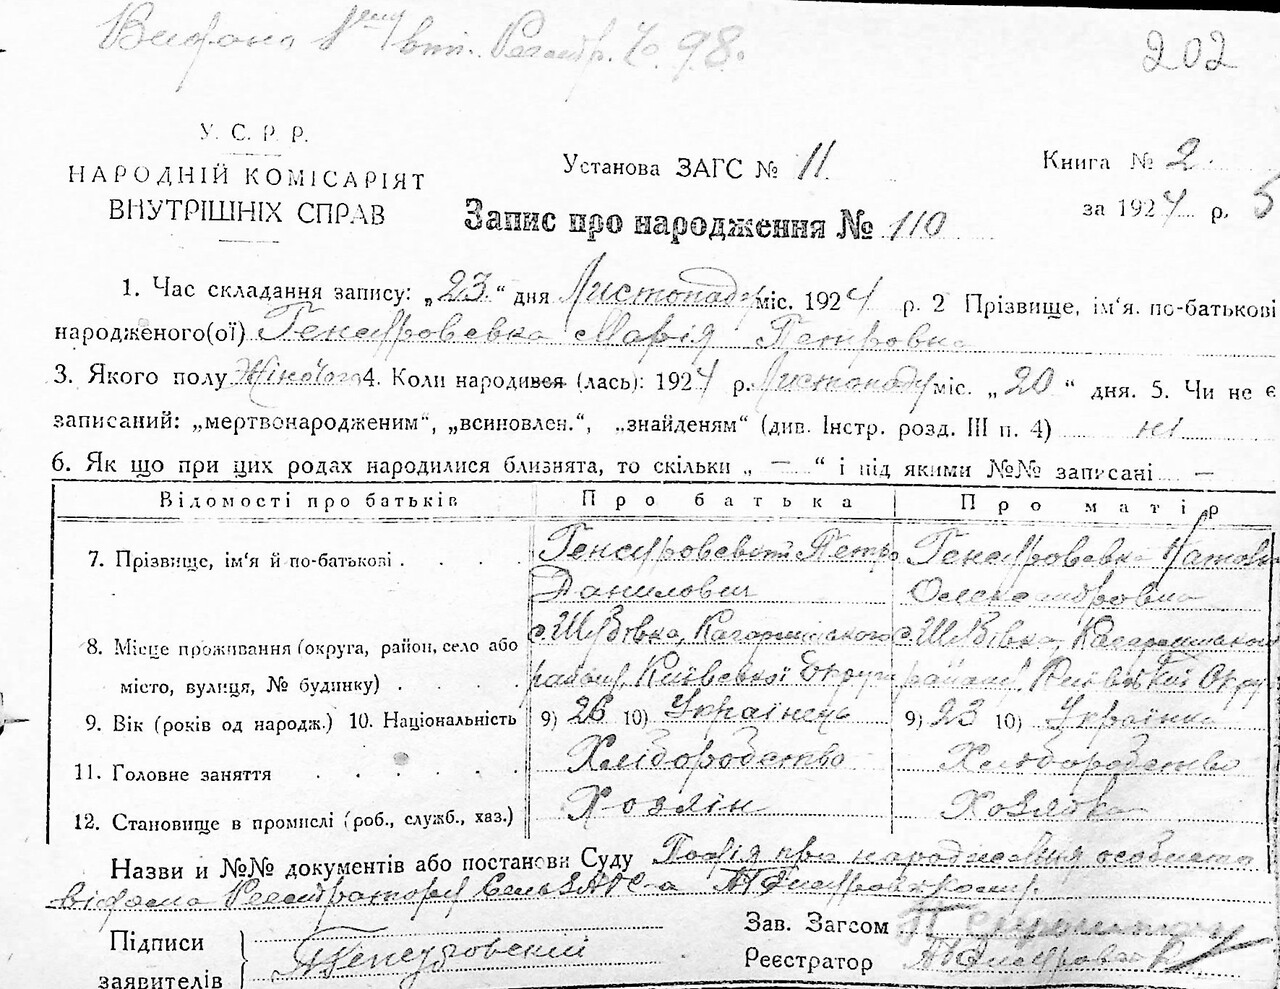 Видано 1 вип. Реєстр. № 98.
202
У. С. Р. Р.
НАРОДНІЙ КОМІСАРІЯТ
ВНУТРІШНІХ СПРАВ
Установа ЗАГС № 11
Книга № 2.
за 1924 р. 5
Запис про народження № 110
1. Час складання запису: „23“ дня Листопаду міс. 1924 р. 2 Прізвище, ім'я. по-батькові
народженого(ої) Марія Петровна
3. Якого полу Жіночого 4. Коли народився (лась): 1924 р. Листопаду міс. „20“ дня. 5. Чи не є
записаний: „мертвонародженим“, „всиновлен.“, „знайденям“ (див. Інстр. розд. III п. 4) ні
6. Як що при цих родах народилися близнята, то скільки „ — “ і під якими №№ записані —
Відомості про батьків Про батька Про матір
7. Прізвище, ім'я й по-батькові . . . . Петро
Данилович Олександровна
8. Місце проживання (округа, район, село або с. Шубівка, Кагарлицького с. Шубівка, Кагарлицького
місто, вулиця, № будинку) . . . . району, Київської Округи району, Київської Округи
9. Вік (років од народж.) 10. Національність 9) 26 10) Українець 9) 23 10) Українка
11. Головне заняття . . . . . Хліборобство Хліборобство
12. Становище в промислі (роб., служб., хаз.) Хозяін Хозяйка
Назви и №№ документів або постанови Суду про народження особиста
Реєстратору
Підписи
заявителів
Зав. Загсом
Реєстратор